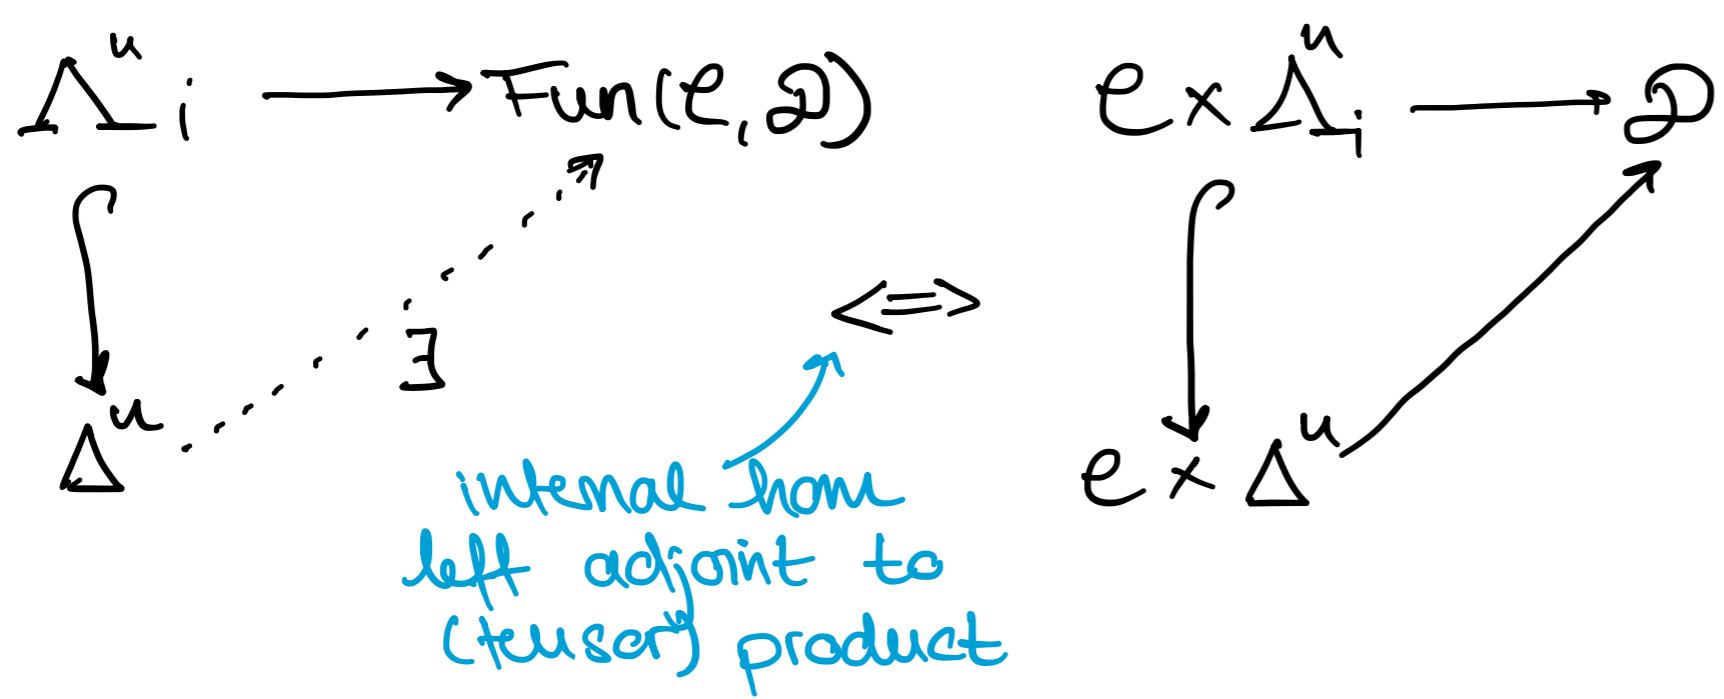 Λⁿᵢ → Fun(𝒞, 𝒟)
𝒞 × Λⁿᵢ → 𝒟
∃
⇔
Δⁿ
𝒞 × Δⁿ
internal hom
left adjoint to
("tensor") product